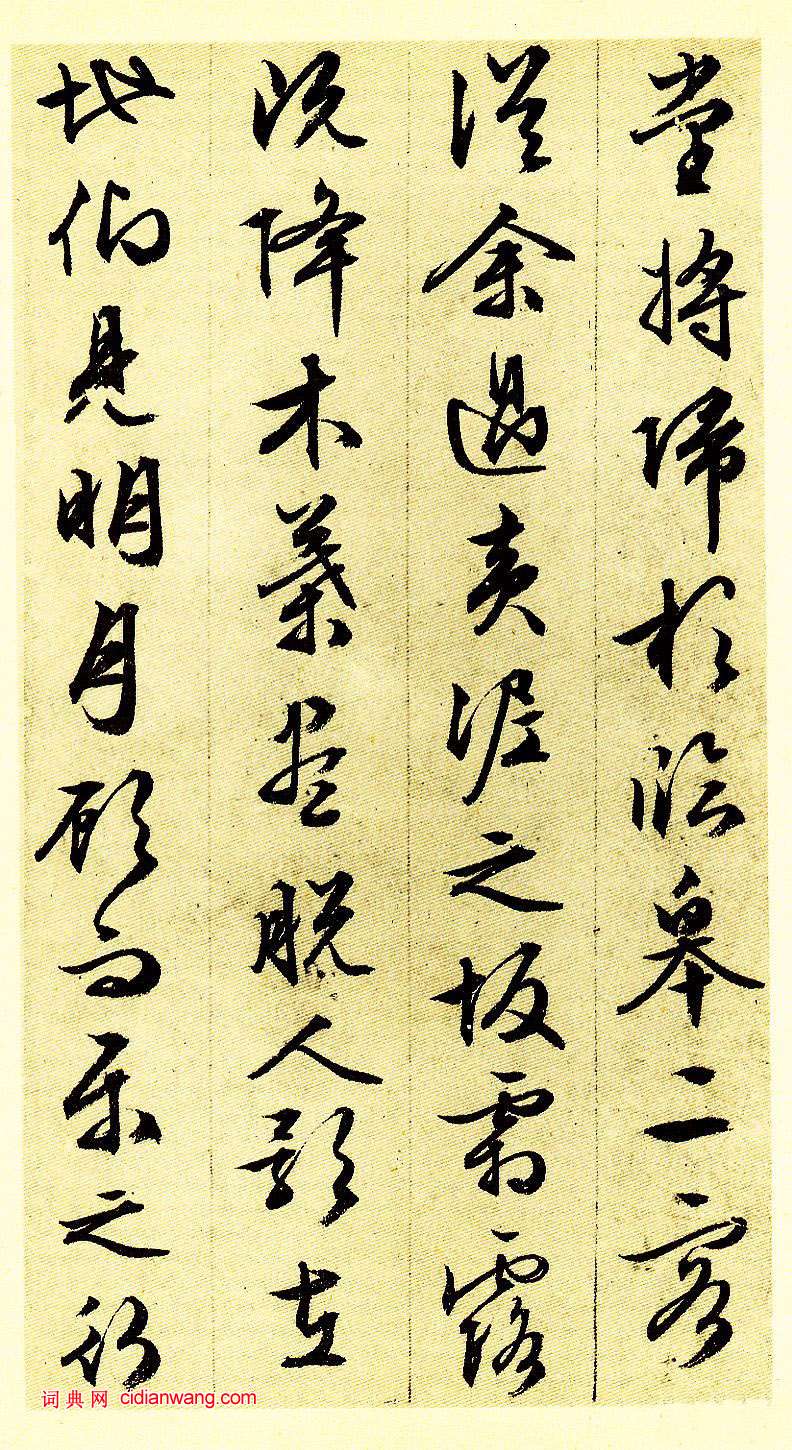 堂將歸於臨皋二客
從余過黃泥之坂霜露
既降木葉盡脫人影在
地仰見明月顧而樂之行
词典网 cidianwang.com